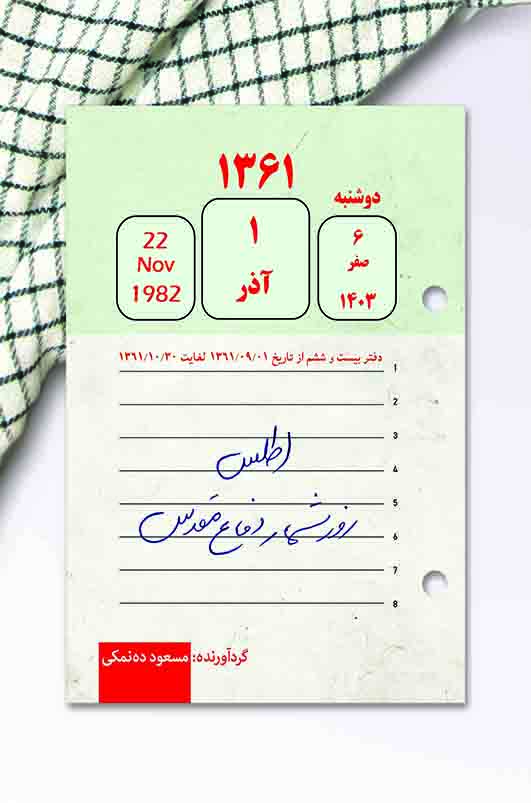 ۱۳۶۱
دوشنبه
۶
صفر
۱۴۰۳
۱
آذر
22
Nov
1982
دفتر بیست و ششم از تاریخ ۱۳۶۱/۰۹/۰۱ لغایت ۱۳۶۱/۱۰/۳۰
1
2
3
اطلس
4
5
روزشمار دفاع مقدس
6
7
8
گردآورنده: مسعود ده‌نمکی